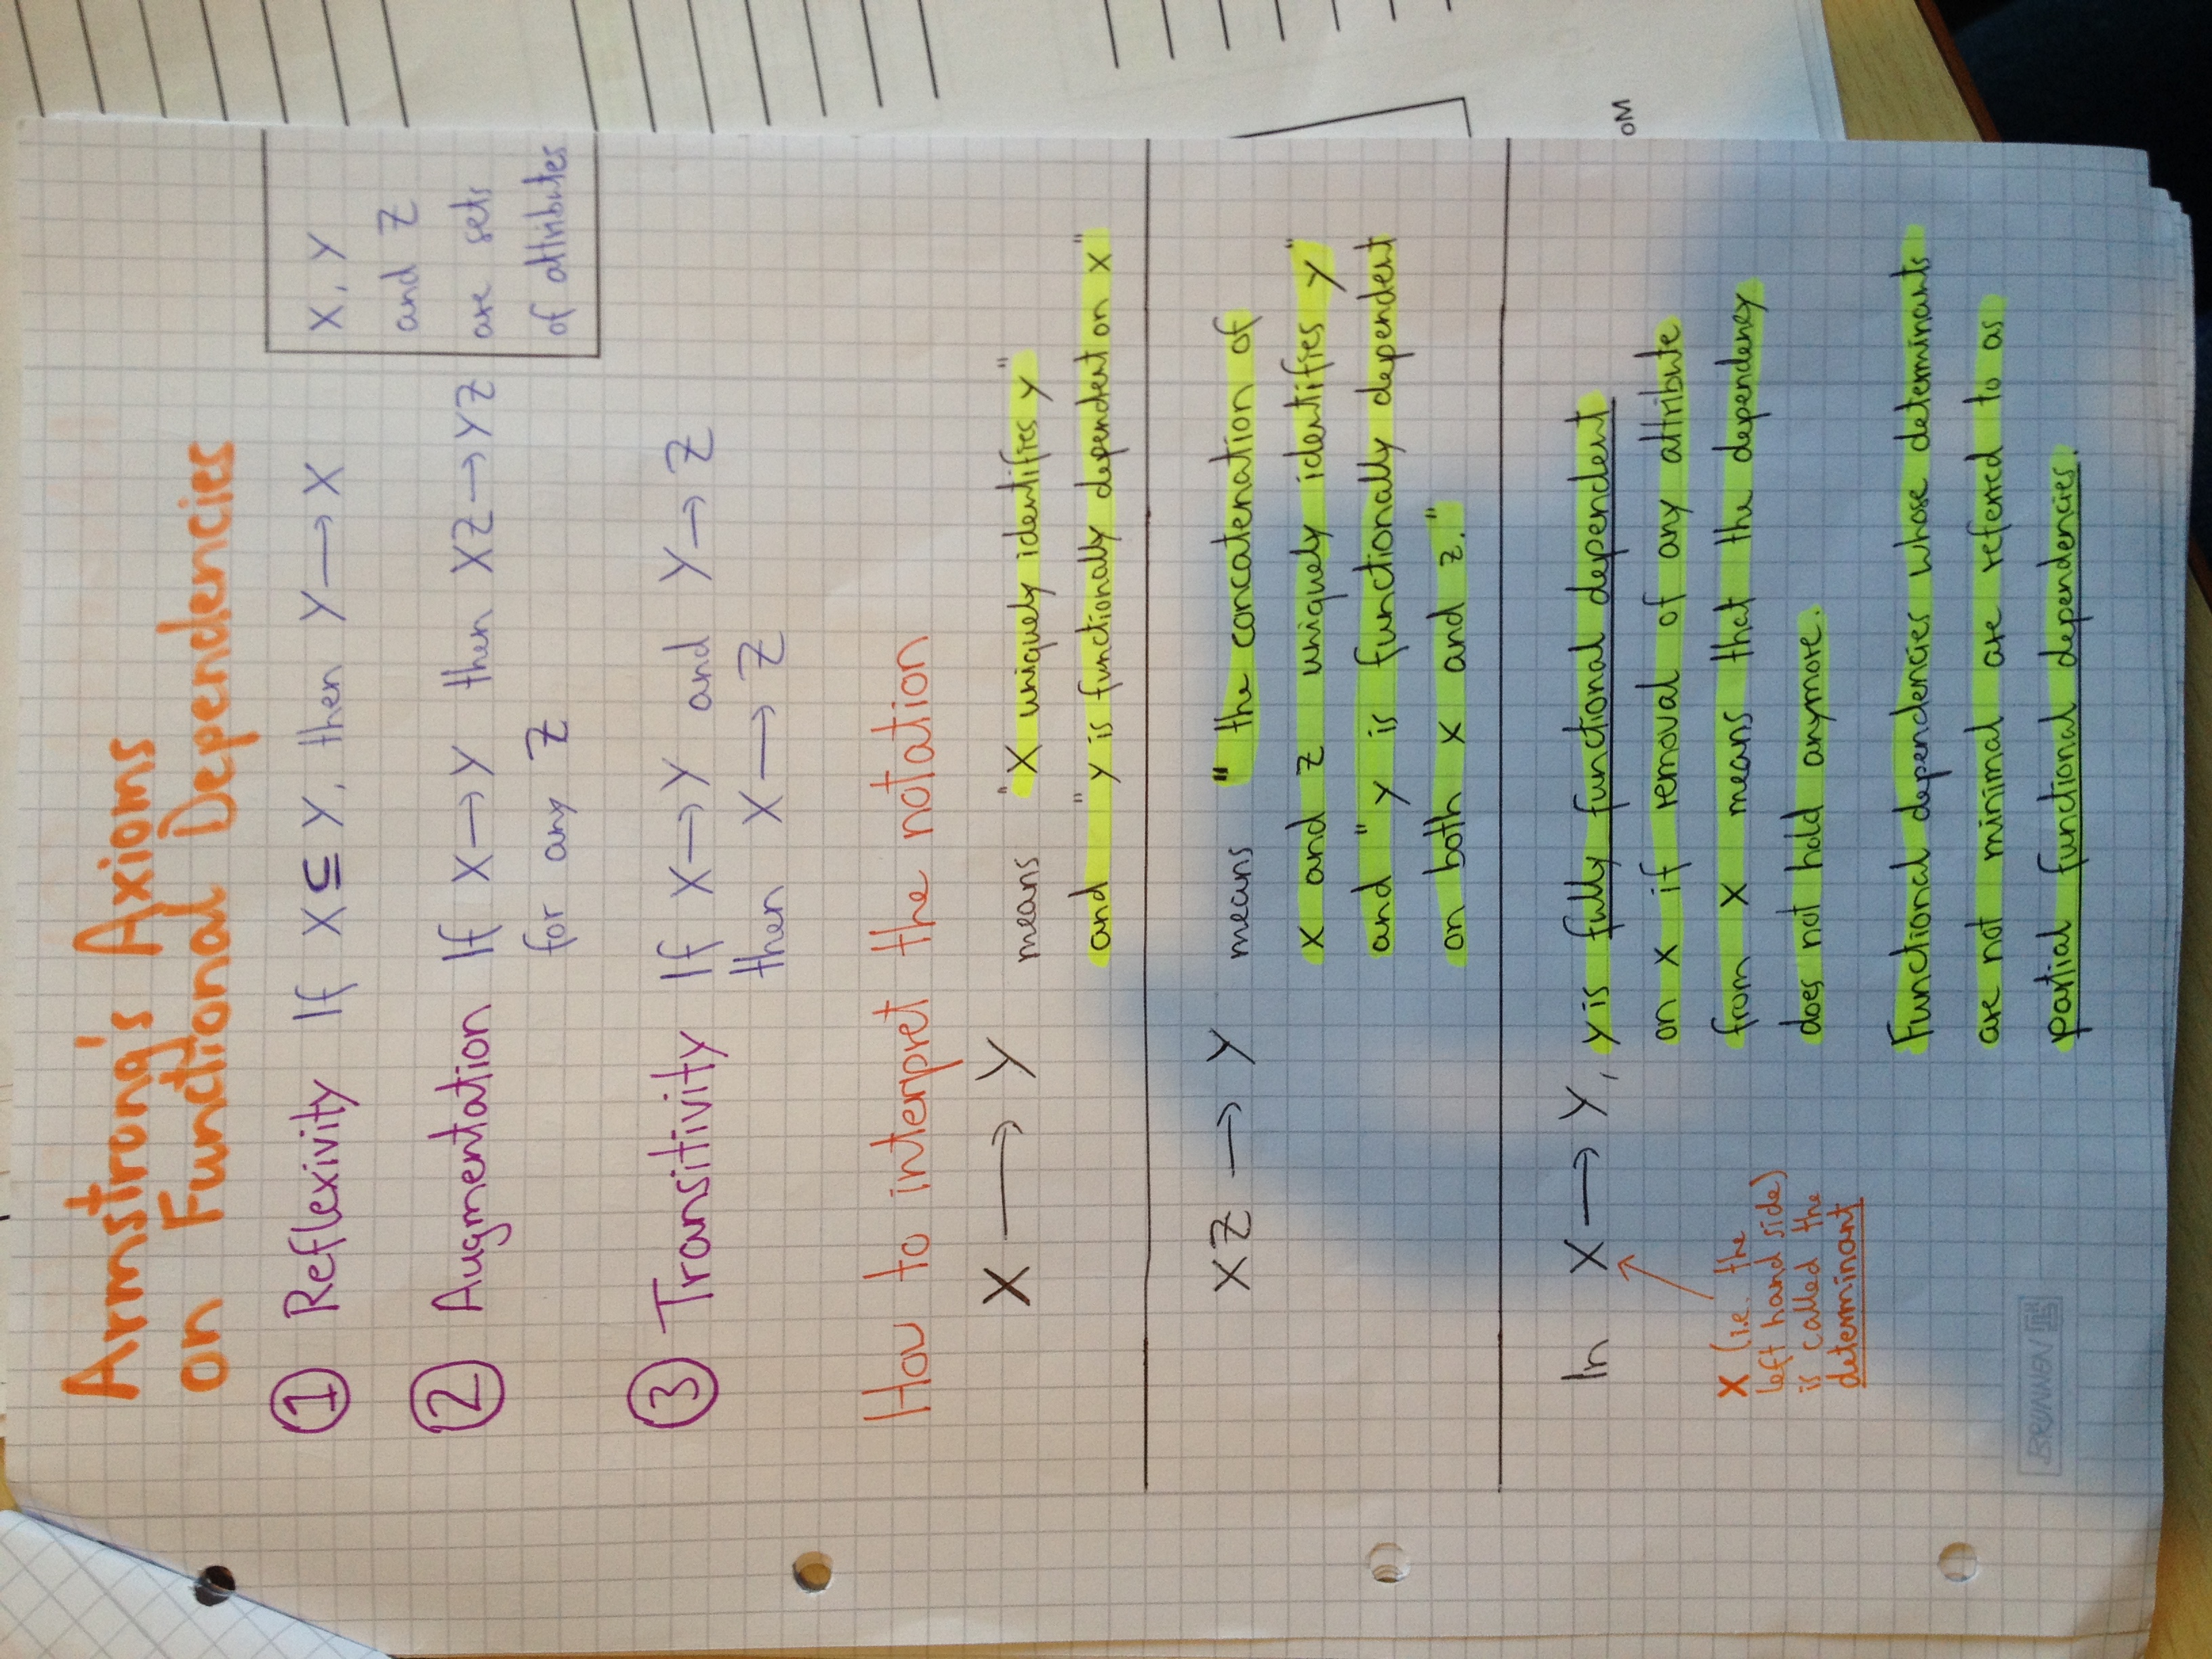 Armstrong's Axioms
on Functional Dependencies
1 Reflexivity If X ⊆ Y, then Y → X
2 Augmentation If X → Y then XZ → YZ
for any Z
X, Y
and Z
are sets
of attributes
3 Transitivity If X → Y and Y → Z
then X → Z
How to interpret the notation
X → Y means "X uniquely identifies y"
and "y is functionally dependent on x"
XZ → Y means "the concatenation of
x and z uniquely identifies y"
and "y is functionally dependent
on both x and z."
In X → Y, y is fully functional dependent
on x if removal of any attribute
from x means that the dependency
does not hold anymore.
X (i.e. the
left hand side)
is called the
determinant
Functional dependencies whose determinants
are not minimal are referred to as
partial functional dependencies.
BRUNNEN
OM